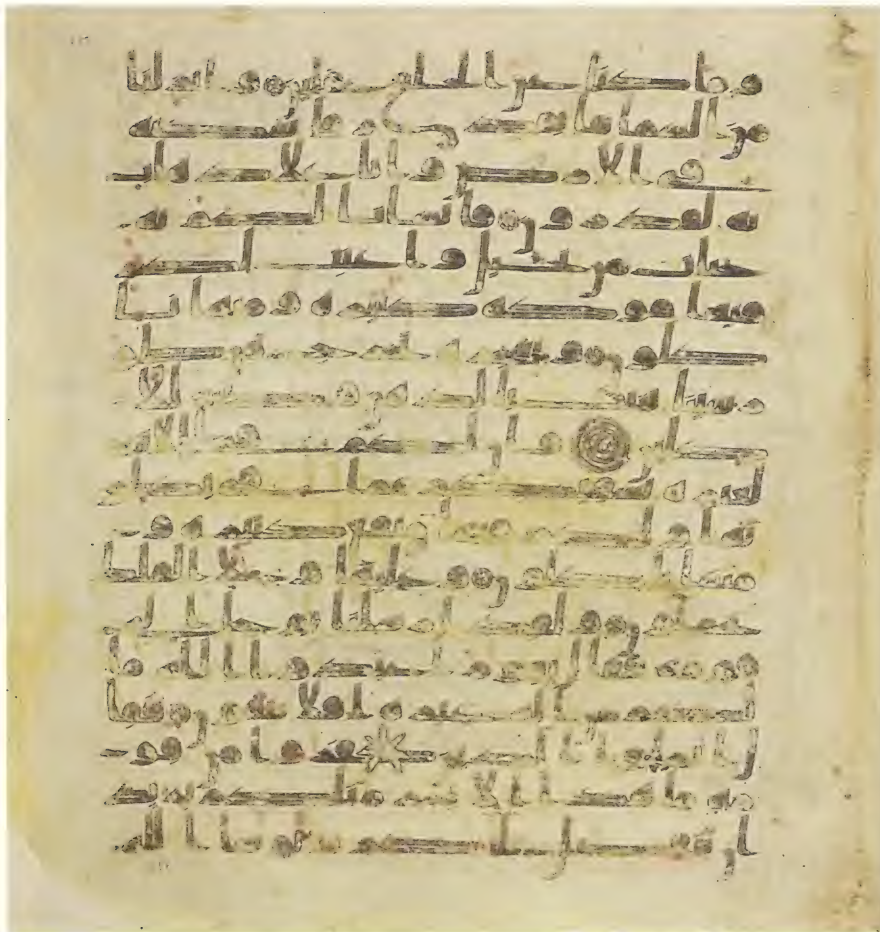 وما كنا عن الخلق غفلين وانزلنا
من السما ما بقدر فاسكنه
في الارض وانا على ذهاب
به لقدرون فانشانا لكم به
جنات من نخيل واعنب لكم
فيها فوكه كثيرة ومنها تا
كلون وشجرة تخرج من طور
سينا تنبت بالدهن وصبغ للا
كلين وان لكم في الانعم
لعبرة نسقيكم مما في بطو
نها ولكم فيها منفع كثيرة و
منها تاكلون وعليها وعلى الفلك
تحملون ولقد ارسلنا نوحا الى
قومه فقال يقوم اعبدوا الله ما
لكم من اله غيره افلا تتقون فقا
ل الملوا الذين كفروا من قو
مه ما هذا الا بشر مثلكم يريد
ان يتفضل عليكم ولو شا الله